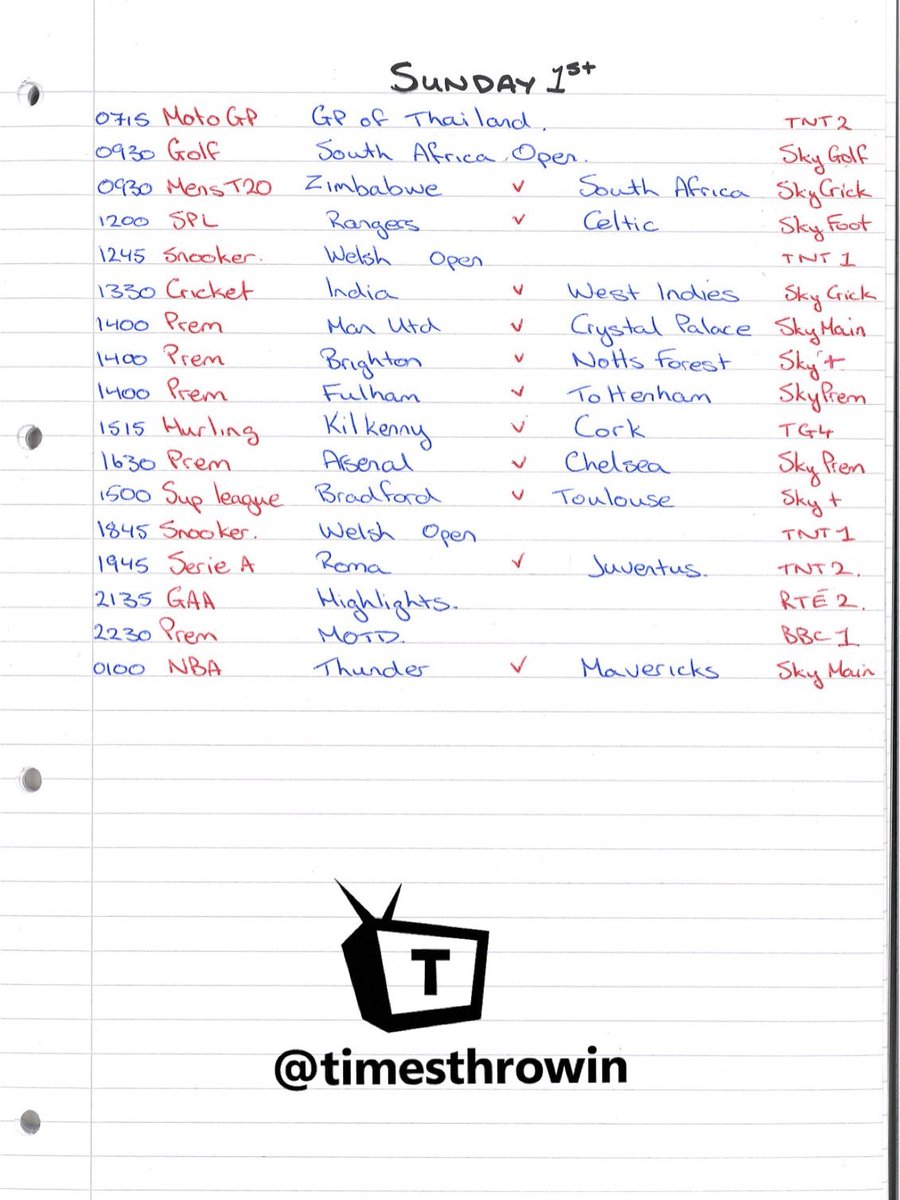 SUNDAY 1st
0715 MotoGP GP of Thailand. TNT 2
0930 Golf South Africa Open. Sky Golf
0930 Mens T20 Zimbabwe v South Africa Sky Crick
1200 SPL Rangers v Celtic Sky Foot
1245 Snooker. Welsh Open TNT 1
1330 Cricket India v West Indies Sky Crick
1400 Prem Man Utd v Crystal Palace Sky Main
1400 Prem Brighton v Notts Forest Sky +
1400 Prem Fulham v Tottenham Sky Prem
1515 Hurling Kilkenny v Cork TG4
1630 Prem Arsenal v Chelsea Sky Prem
1500 Sup league Bradford v Toulouse Sky +
1845 Snooker. Welsh Open TNT 1
1945 Serie A Roma v Juventus. TNT 2.
2135 GAA Highlights. RTÉ 2.
2230 Prem MOTD. BBC 1
0100 NBA Thunder v Mavericks Sky Main
T
@timesthrowin